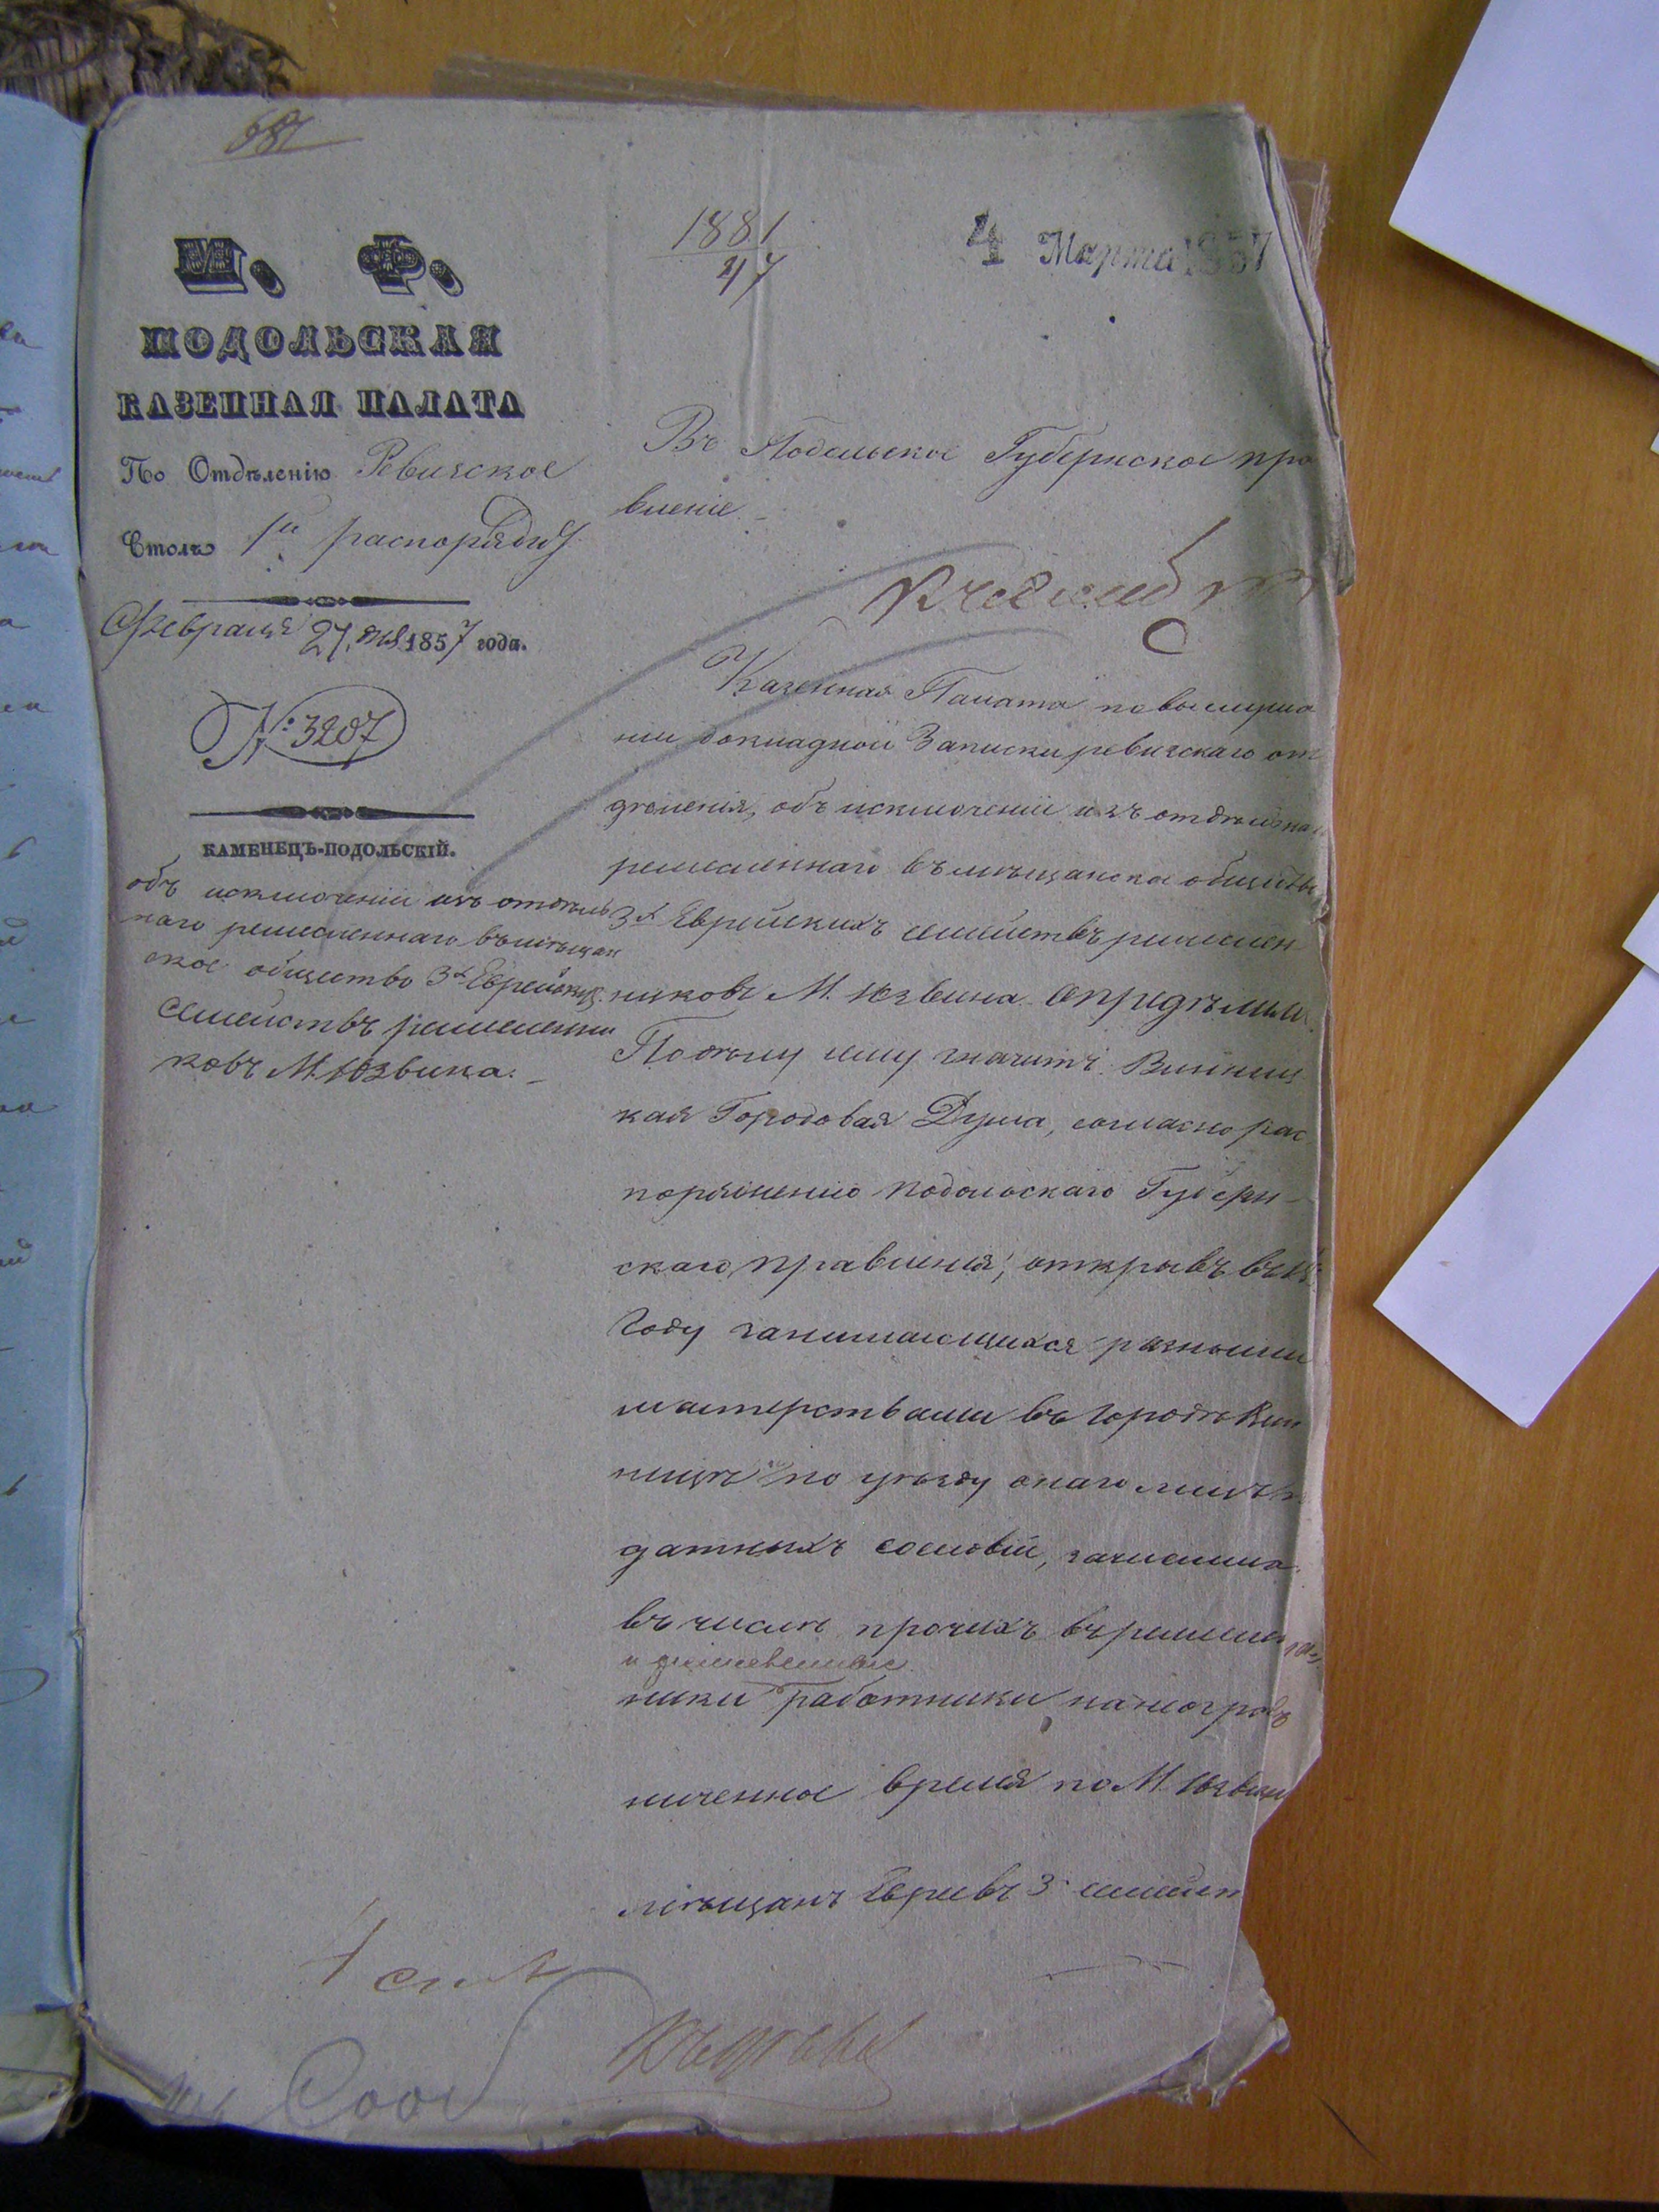 681
1881
47
4 Марта 1857
М. Ф.
ПОДОЛЬСКАЯ
КАЗЕННАЯ ПАЛАТА
По Отдѣленію Ревизское
Столъ 1й
Февраля 27 дня 1857 года.
№ 3207
КАМЕНЕЦЪ-ПОДОЛЬСКІЙ.
объ исключеніи изъ отдѣль
наго ремесленнаго въ мѣщан
ское общество 3х Еврейскихъ
семействъ ремесленни
ковъ М. Юзвина.
Въ Подольское Губернское пра
вленіе
Казенная Палата по выслуша
ніи докладной Записки ревизскаго от
дѣленія, объ исключеніи изъ отдѣльна
ремесленнаго въ мѣщанское общество
3х Еврейскихъ семействъ ремеслен
никовъ М. Юзвина Опредѣлила
По дѣлу сему значитъ: Винниц
кая Городовая Дума, согласно рас
поряженію Подольскаго Губерн-
скаго правленія, открывъ въ
году занимающихся разными
мастерствами въ городѣ Вин
ницѣ и по уѣзду онаго лицъ
датныхъ сословій, зачислила
въ числѣ прочихъ въ ремеслен
ники работники на неогра
ниченное время по М. Юзвин
мѣщанъ Евреевъ 3 семейст